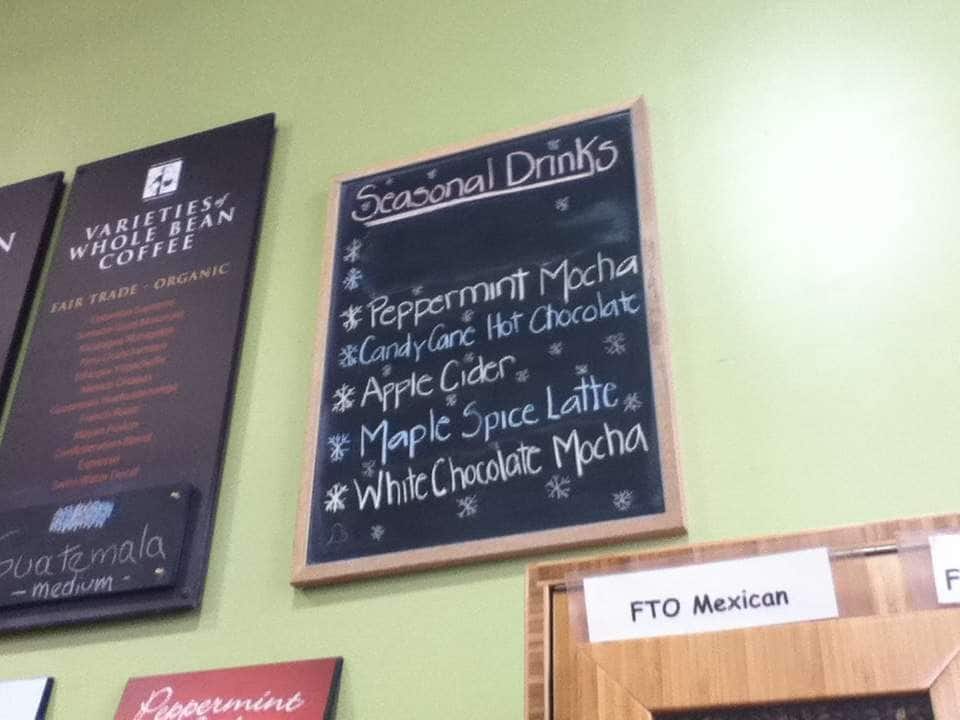 N
VARIETIES of
WHOLE BEAN
COFFEE
FAIR TRADE · ORGANIC
French Roast
Espresso
Guatemala
- medium -
Seasonal Drinks
Peppermint Mocha
Candy Cane Hot Chocolate
Apple Cider
Maple Spice Latte
White Chocolate Mocha
FTO Mexican
F
Peppermint